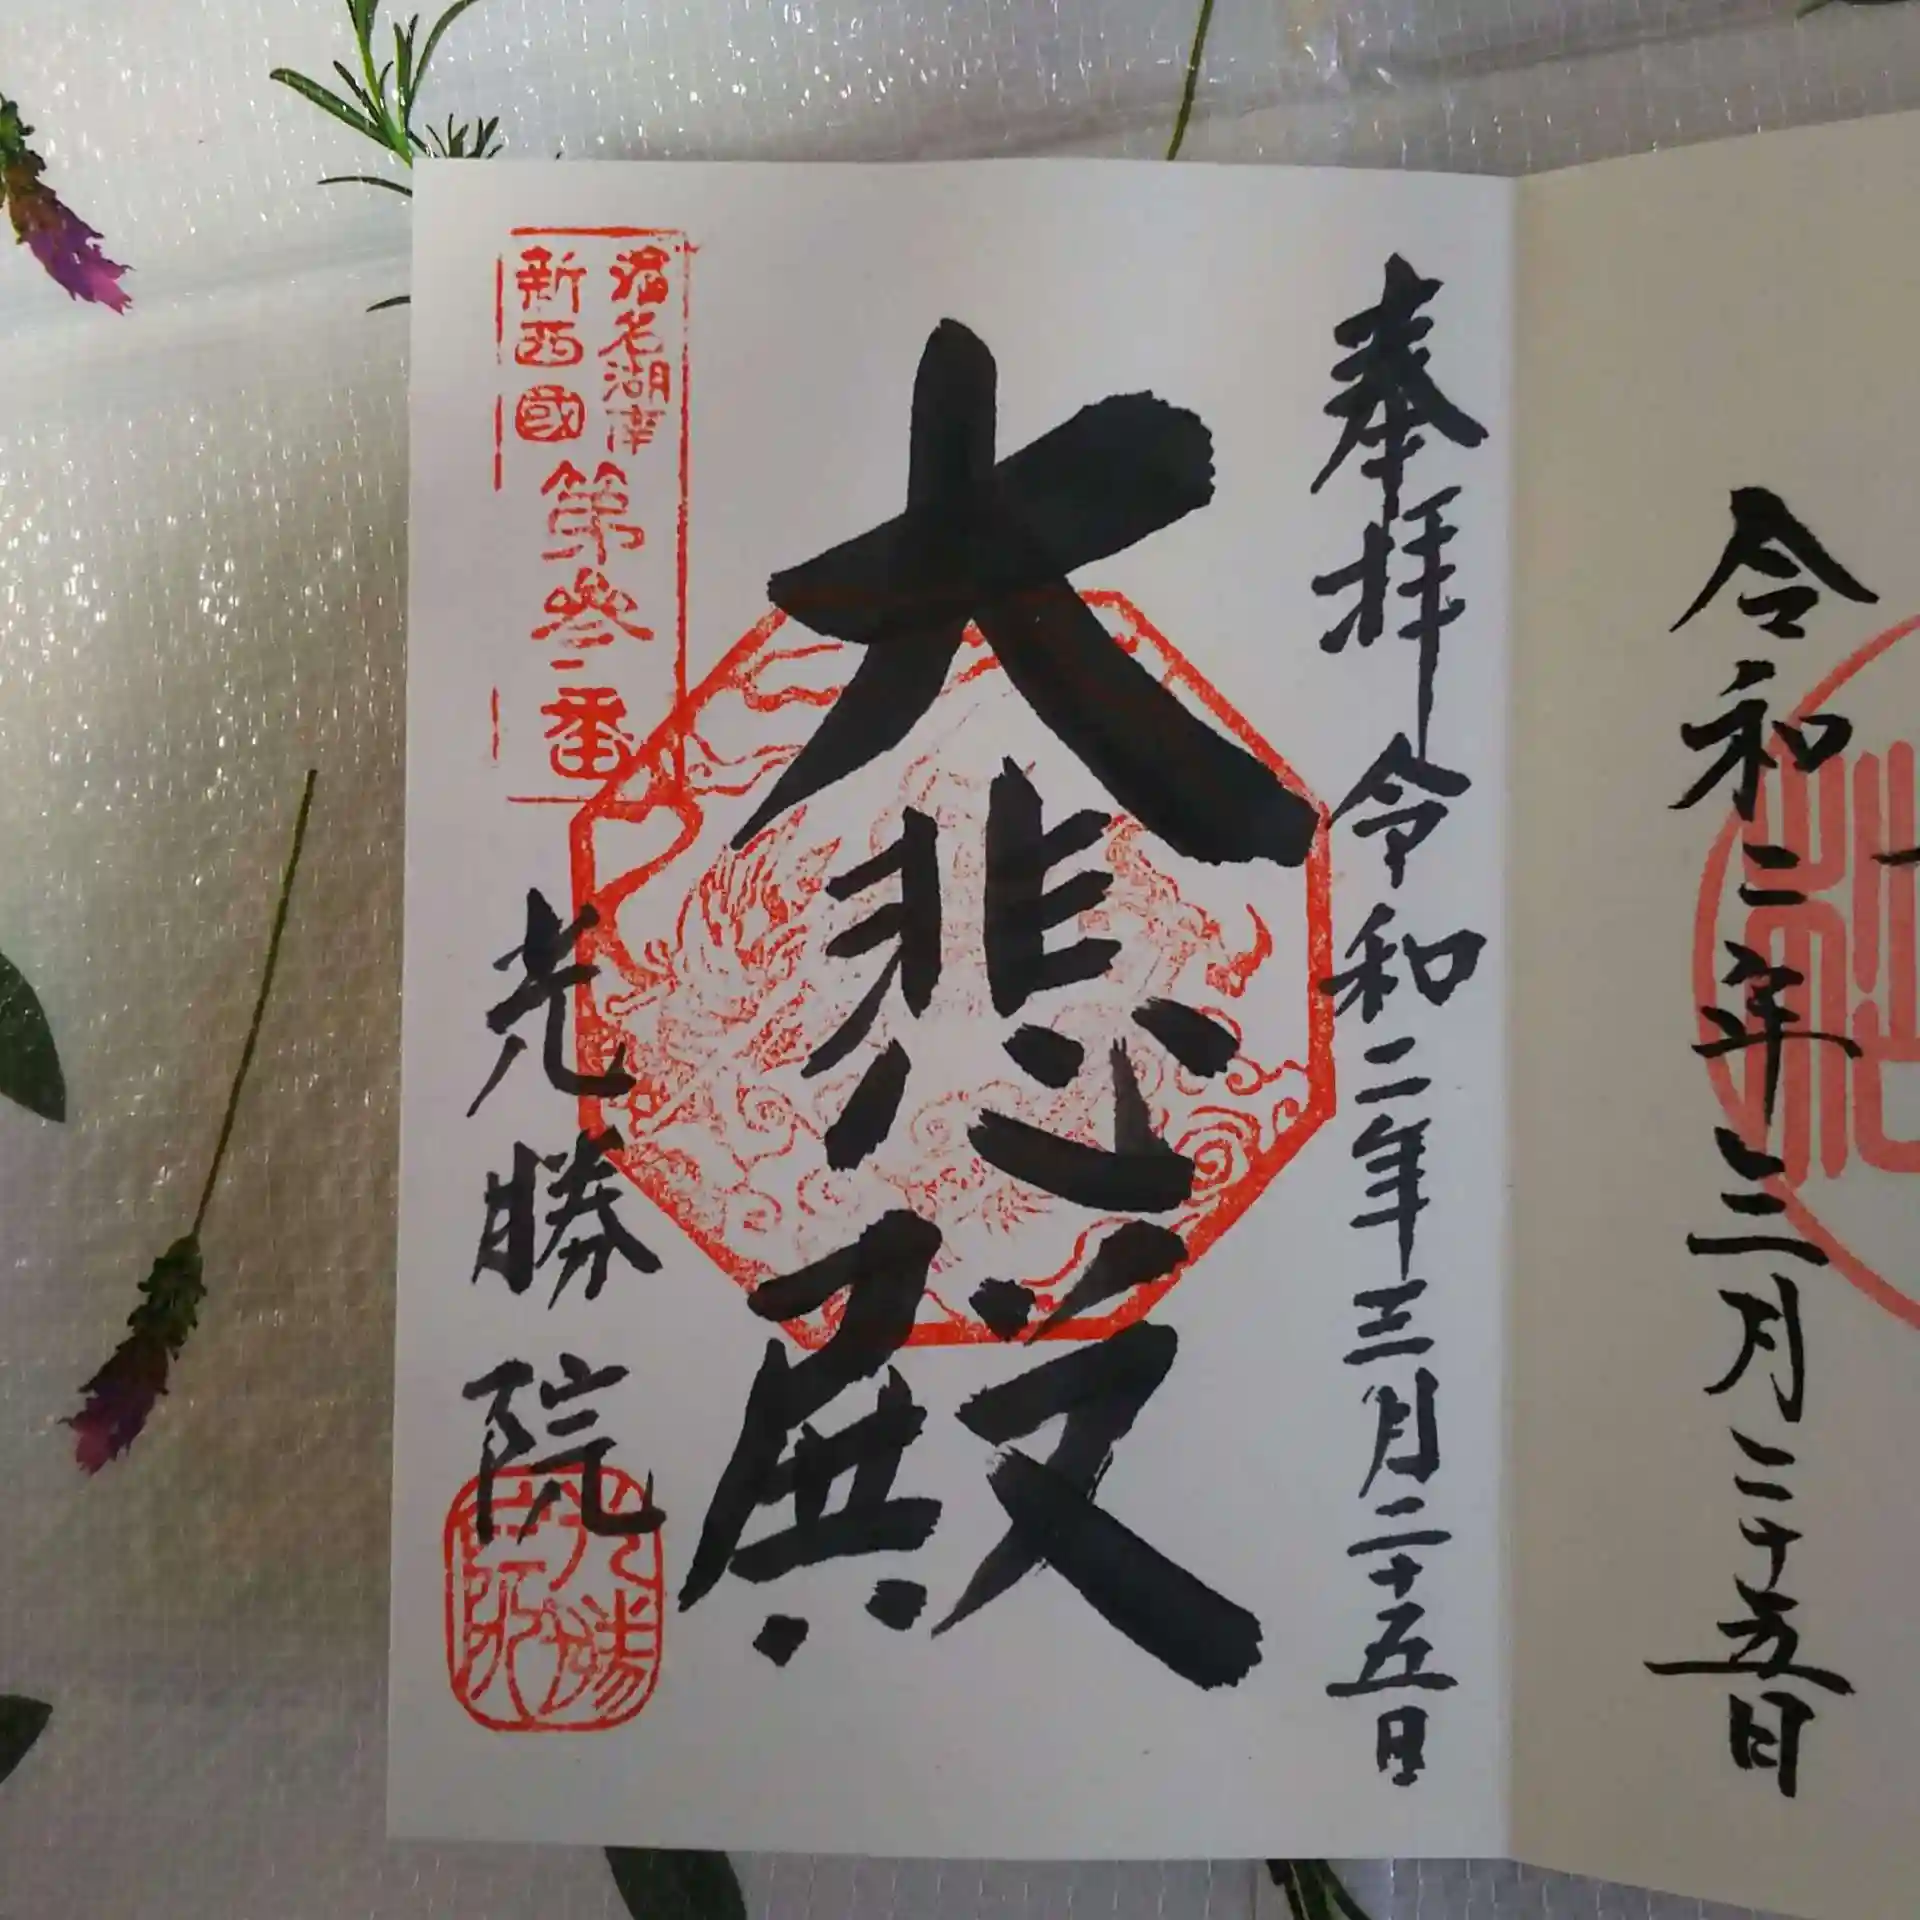 令和二年三月二十五日
奉拝 令和二年三月二十五日
大悲殿
浜名湖南
新西國
第参番
光勝院
光勝院